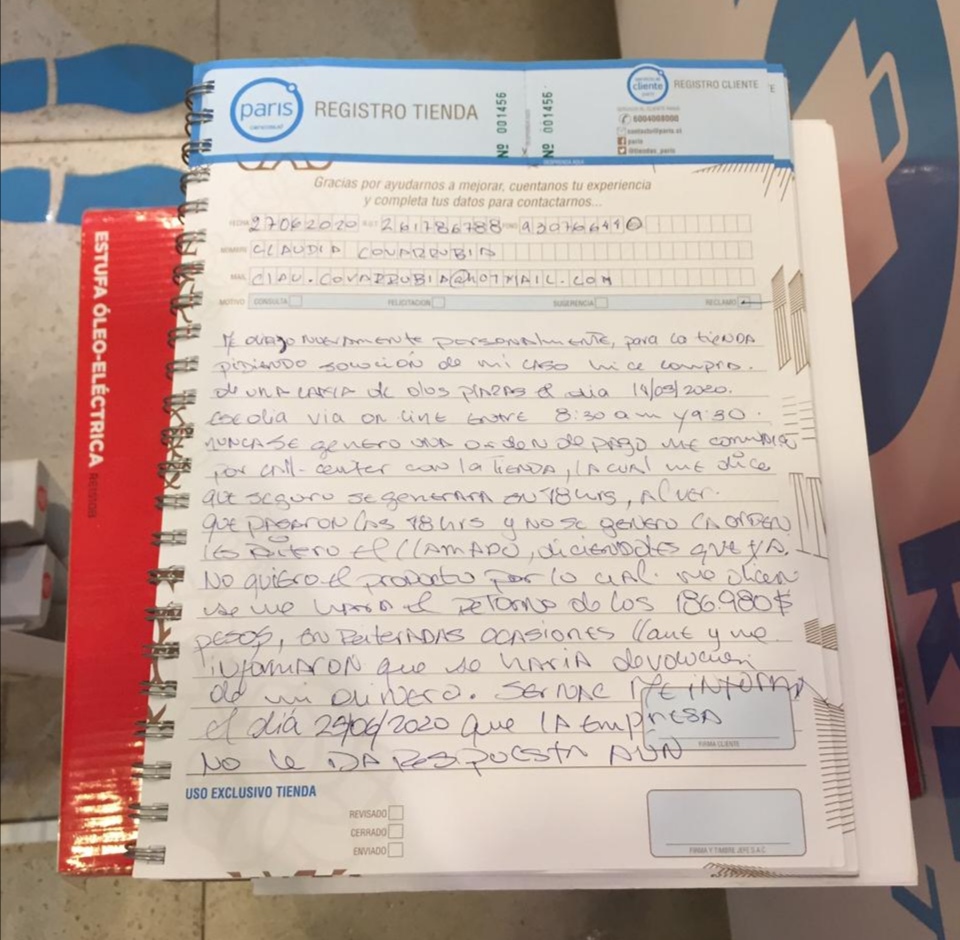 paris
REGISTRO TIENDA
Nº 001456
Nº 001456
cliente
REGISTRO CLIENTE
6004008000
contacto@paris.cl
paris
@tiendas_paris
Gracias por ayudarnos a mejorar, cuentanos tu experiencia
y completa tus datos para contactarnos...
FECHA 27062020 RUT 261786788 FONO
NOMBRE CLAUDIA COVARRUBIA
MAIL CLAU.COVARRUBIA@HOTMAIL.COM
MOTIVO CONSULTA FELICITACION SUGERENCIA RECLAMO
nuevamente personalmente, para la tienda
pidiendo solución de mi caso hice compra.
de una cama de dos plazas el dia 14/05/2020.
ese dia via on line entre 8:30 am y 9:30.
nunca se genero una orden de pago me comunico
por call-center con la tienda, la cual me dice
que seguro se generara en 78 hrs, al ver.
que pasaron las 78 hrs y no se genero la orden
les reitero el llamado, diciendoles que ya.
no quiero el producto por lo cual. me dicen
se me hara el retorno de los 186.980$
pesos, en reiteradas ocasiones llame y me
informaron que se haria devolucion
de mi dinero. SERNAC me informa
el día 25/06/2020 que la empresa
no le da respuesta aún
FIRMA CLIENTE
USO EXCLUSIVO TIENDA
REVISADO
CERRADO
ENVIADO
FIRMA Y TIMBRE JEFE S.A.C
ESTUFA ÓLEO-ELÉCTRICA